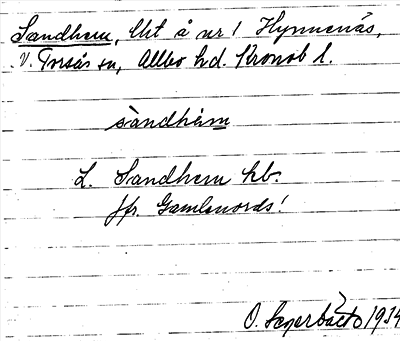 Sandhem, lht å nr 1 Hynnenäs,
V. Torsås sn, Allbo hd. Kronob l.
sàndhèm
L. Sandhem kb.
Jfr. Gamlanords!
O. Sagerbäck 1934